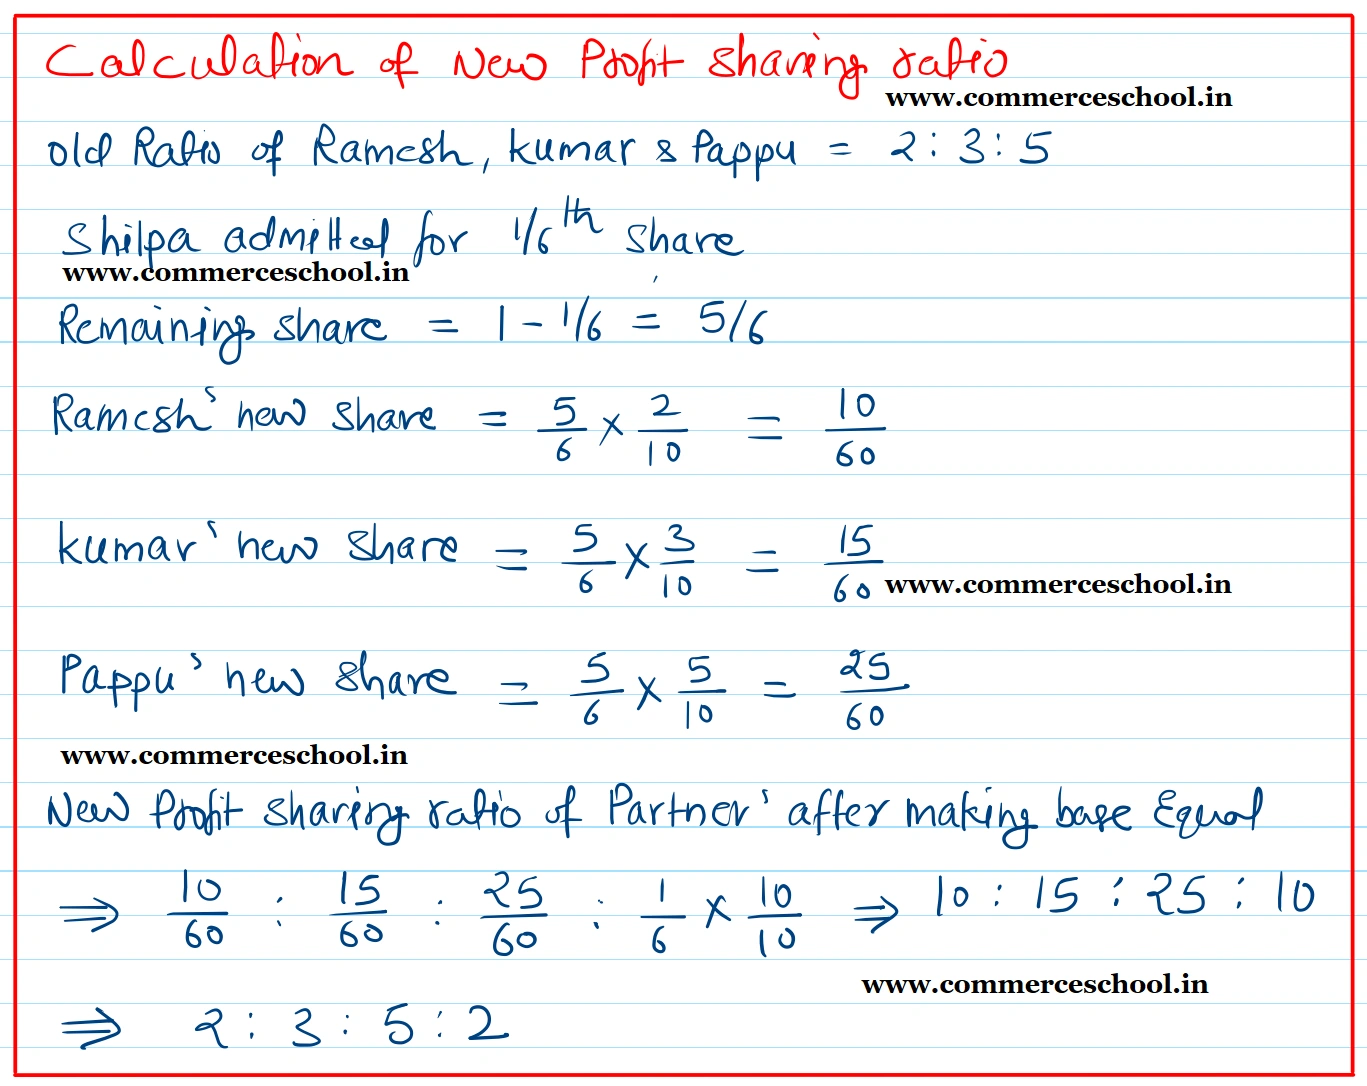 Calculation of New Profit sharing ratio
www.commerceschool.in
old Ratio of Ramesh, kumar & Pappu = 2 : 3 : 5
Shilpa admitted for 1/6th share
www.commerceschool.in
Remaining share = 1 - 1/6 = 5/6
Ramesh's new share = 5/6 × 2/10 = 10/60
kumar's new share = 5/6 × 3/10 = 15/60
www.commerceschool.in
Pappu's new share = 5/6 × 5/10 = 25/60
www.commerceschool.in
New Profit sharing ratio of Partner's after making base Equal
⇒ 10/60 : 15/60 : 25/60 : 1/6 × 10/10 ⇒ 10 : 15 : 25 : 10
www.commerceschool.in
⇒ 2 : 3 : 5 : 2